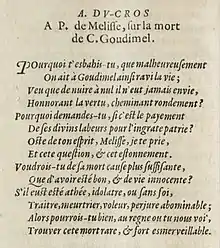 A. DV-CROS
A P. de Melisse, sur la mort
de C. Goudimel.
POurquoi t'esbahis-tu, que malheureusement
On ait à Goudimel ainsi ravi la vie;
Veu que de nuire à nul il n'eut jamais envie,
Honnorant la vertu, cheminant rondement?
Pourquoi demandes-tu, si c'est le payement
De ses divins labeurs pour l'ingrate patrie?
Oste de ton esprit, Melisse, je te prie,
Et cette question, & cet estonnement.
Voudrois-tu de sa mort cause plus suffisante,
Que d'avoir esté bon, & de vie innocente?
S'il eust esté athée, idolatre, ou sans foi,
Traitre, meurtrier, voleur, perjure abominable;
Alors pourrois-tu bien, au regne ou tu nous voi,
Trouver cete mort rare, & fort esmerveillable.